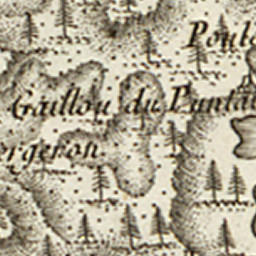 Poul
Gaillou du Punta
ergeron